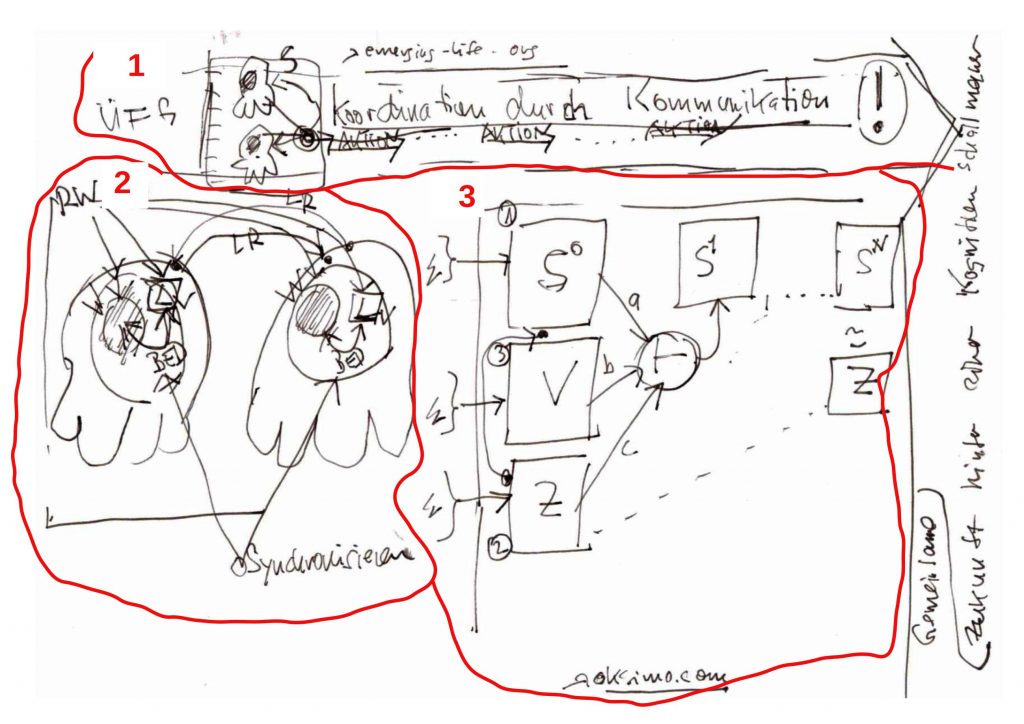 1
ÜFG
S
emerging-life.org
Koordination durch Kommunikation
AKTION ... AKTION ..... AKTION
!
2
RW
LR
LR
Synchronisieren
3
1
S⁰
S¹
S*
a
3
V
b
≈
Z
c
Z
2
oksimo.com
Gemeinsame
Zukunft hinter einer Kognitionsschallmauer